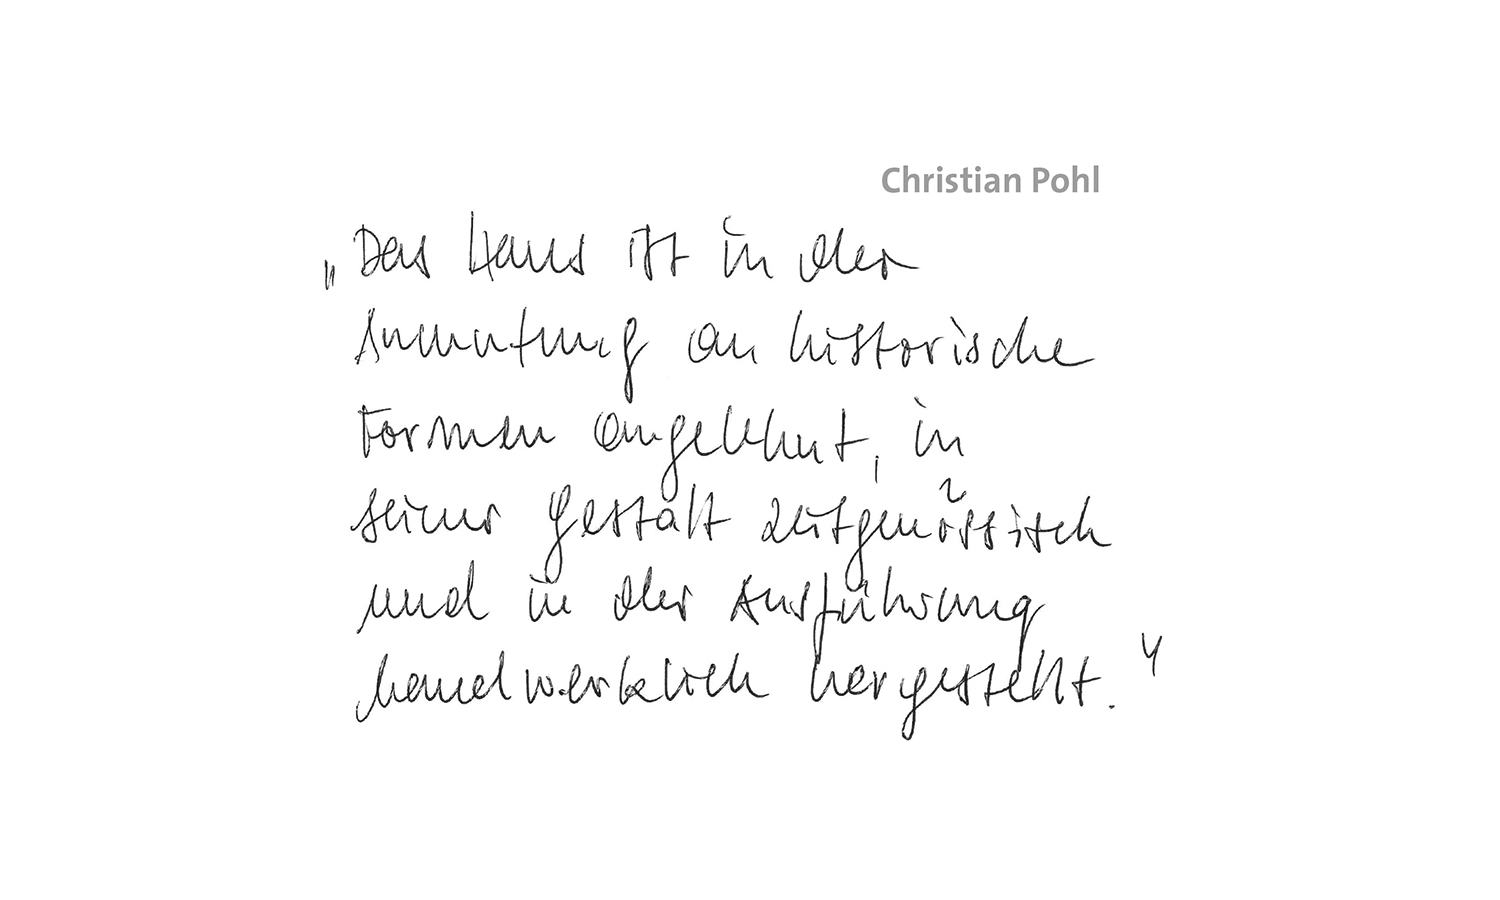 Christian Pohl
„Das Haus ist in der
Anmutung an historische
Formen angelehnt, in
seiner Gestalt zeitgenössisch
und in der Ausführung
handwerklich hergestellt."